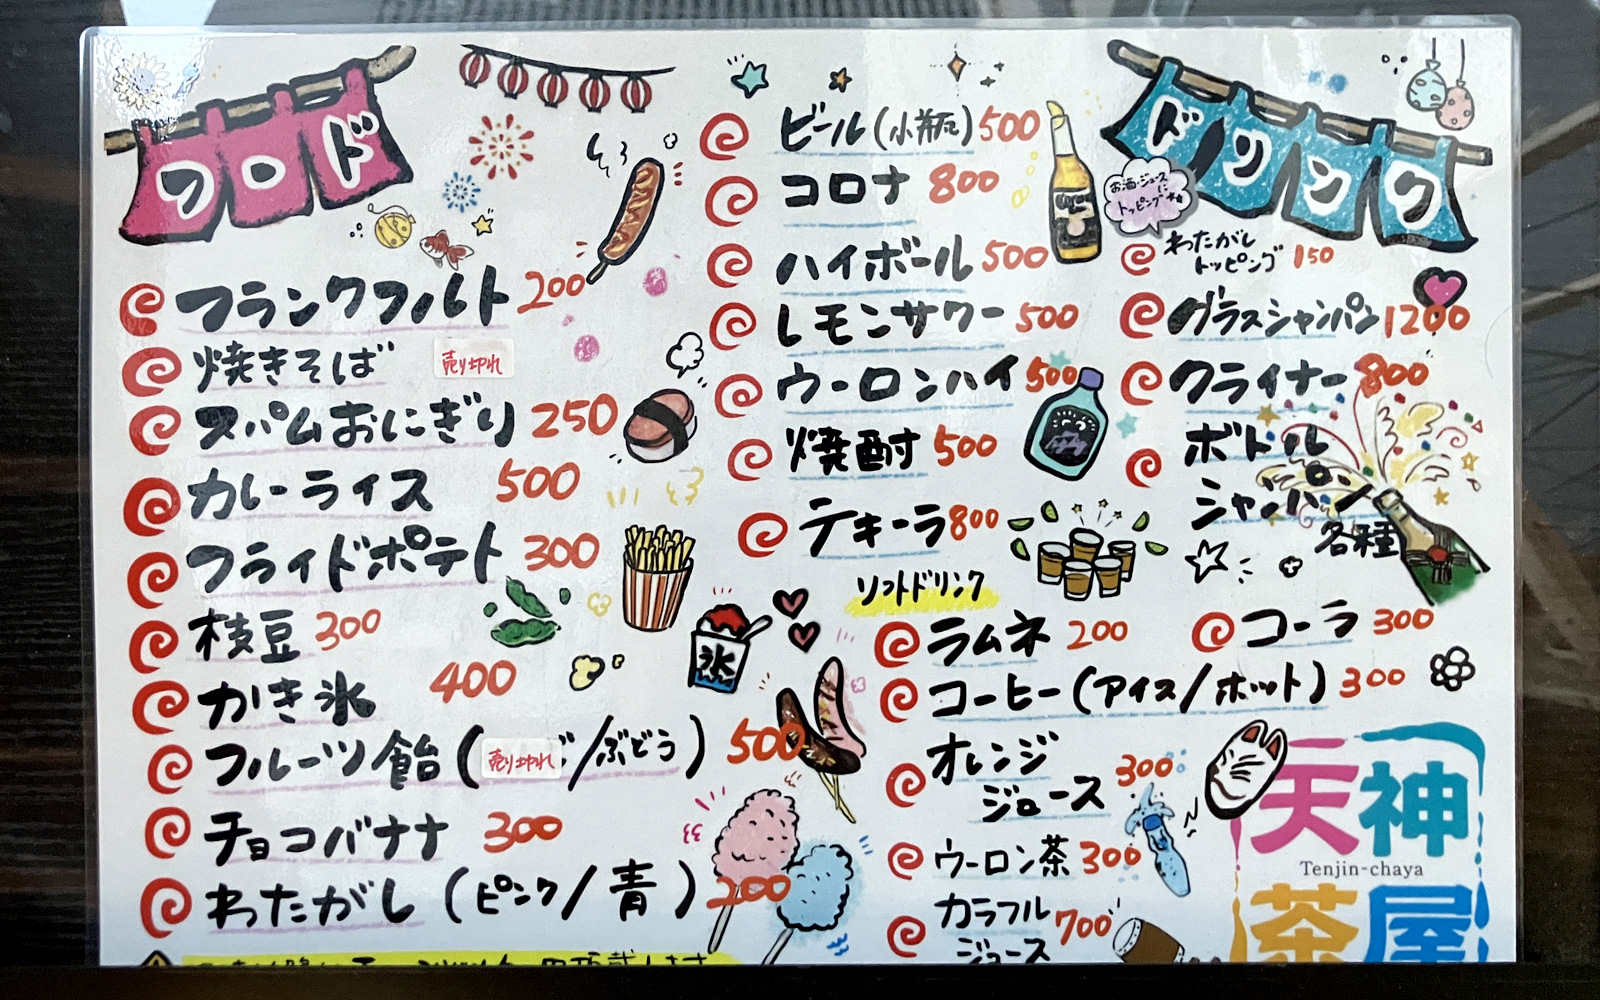 フード
フランクフルト 200
焼きそば 売り切れ
スパムおにぎり 250
カレーライス 500
フライドポテト 300
枝豆 300
かき氷 400
氷
フルーツ飴 (売り切れ/ぶどう) 500
チョコバナナ 300
わたがし (ピンク/青) 200
ビール(小瓶) 500
コロナ 800
ハイボール 500
レモンサワー 500
ウーロンハイ 500
焼酎 500
テキーラ 800
ドリンク
お酒・ジュース
に
トッピング
わたがし
トッピング 150
グラスシャンパン 1200
クライナー 800
ボトル
シャンパン
各種
ソフトドリンク
ラムネ 200
コーラ 300
コーヒー(アイス/ホット) 300
オレンジ
ジュース 300
ウーロン茶 300
カラフル
ジュース 700
天神
Tenjin-chaya
茶屋